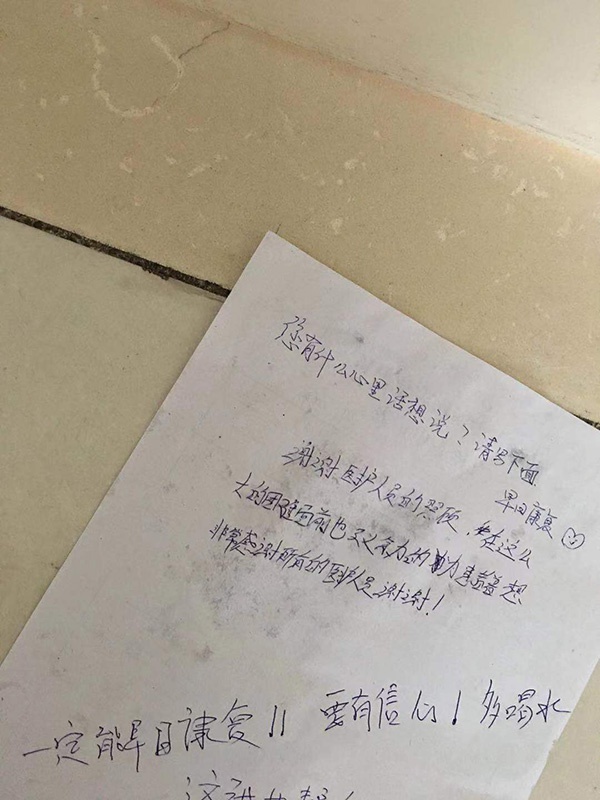 您有什么心里话想说？请写下面
早日康复
谢谢医护人员的照顾，在这么
大的困难面前也义务的为患着想
非常感谢所有的医护人员谢谢！
一定能早日康复!! 要有信心！多喝水